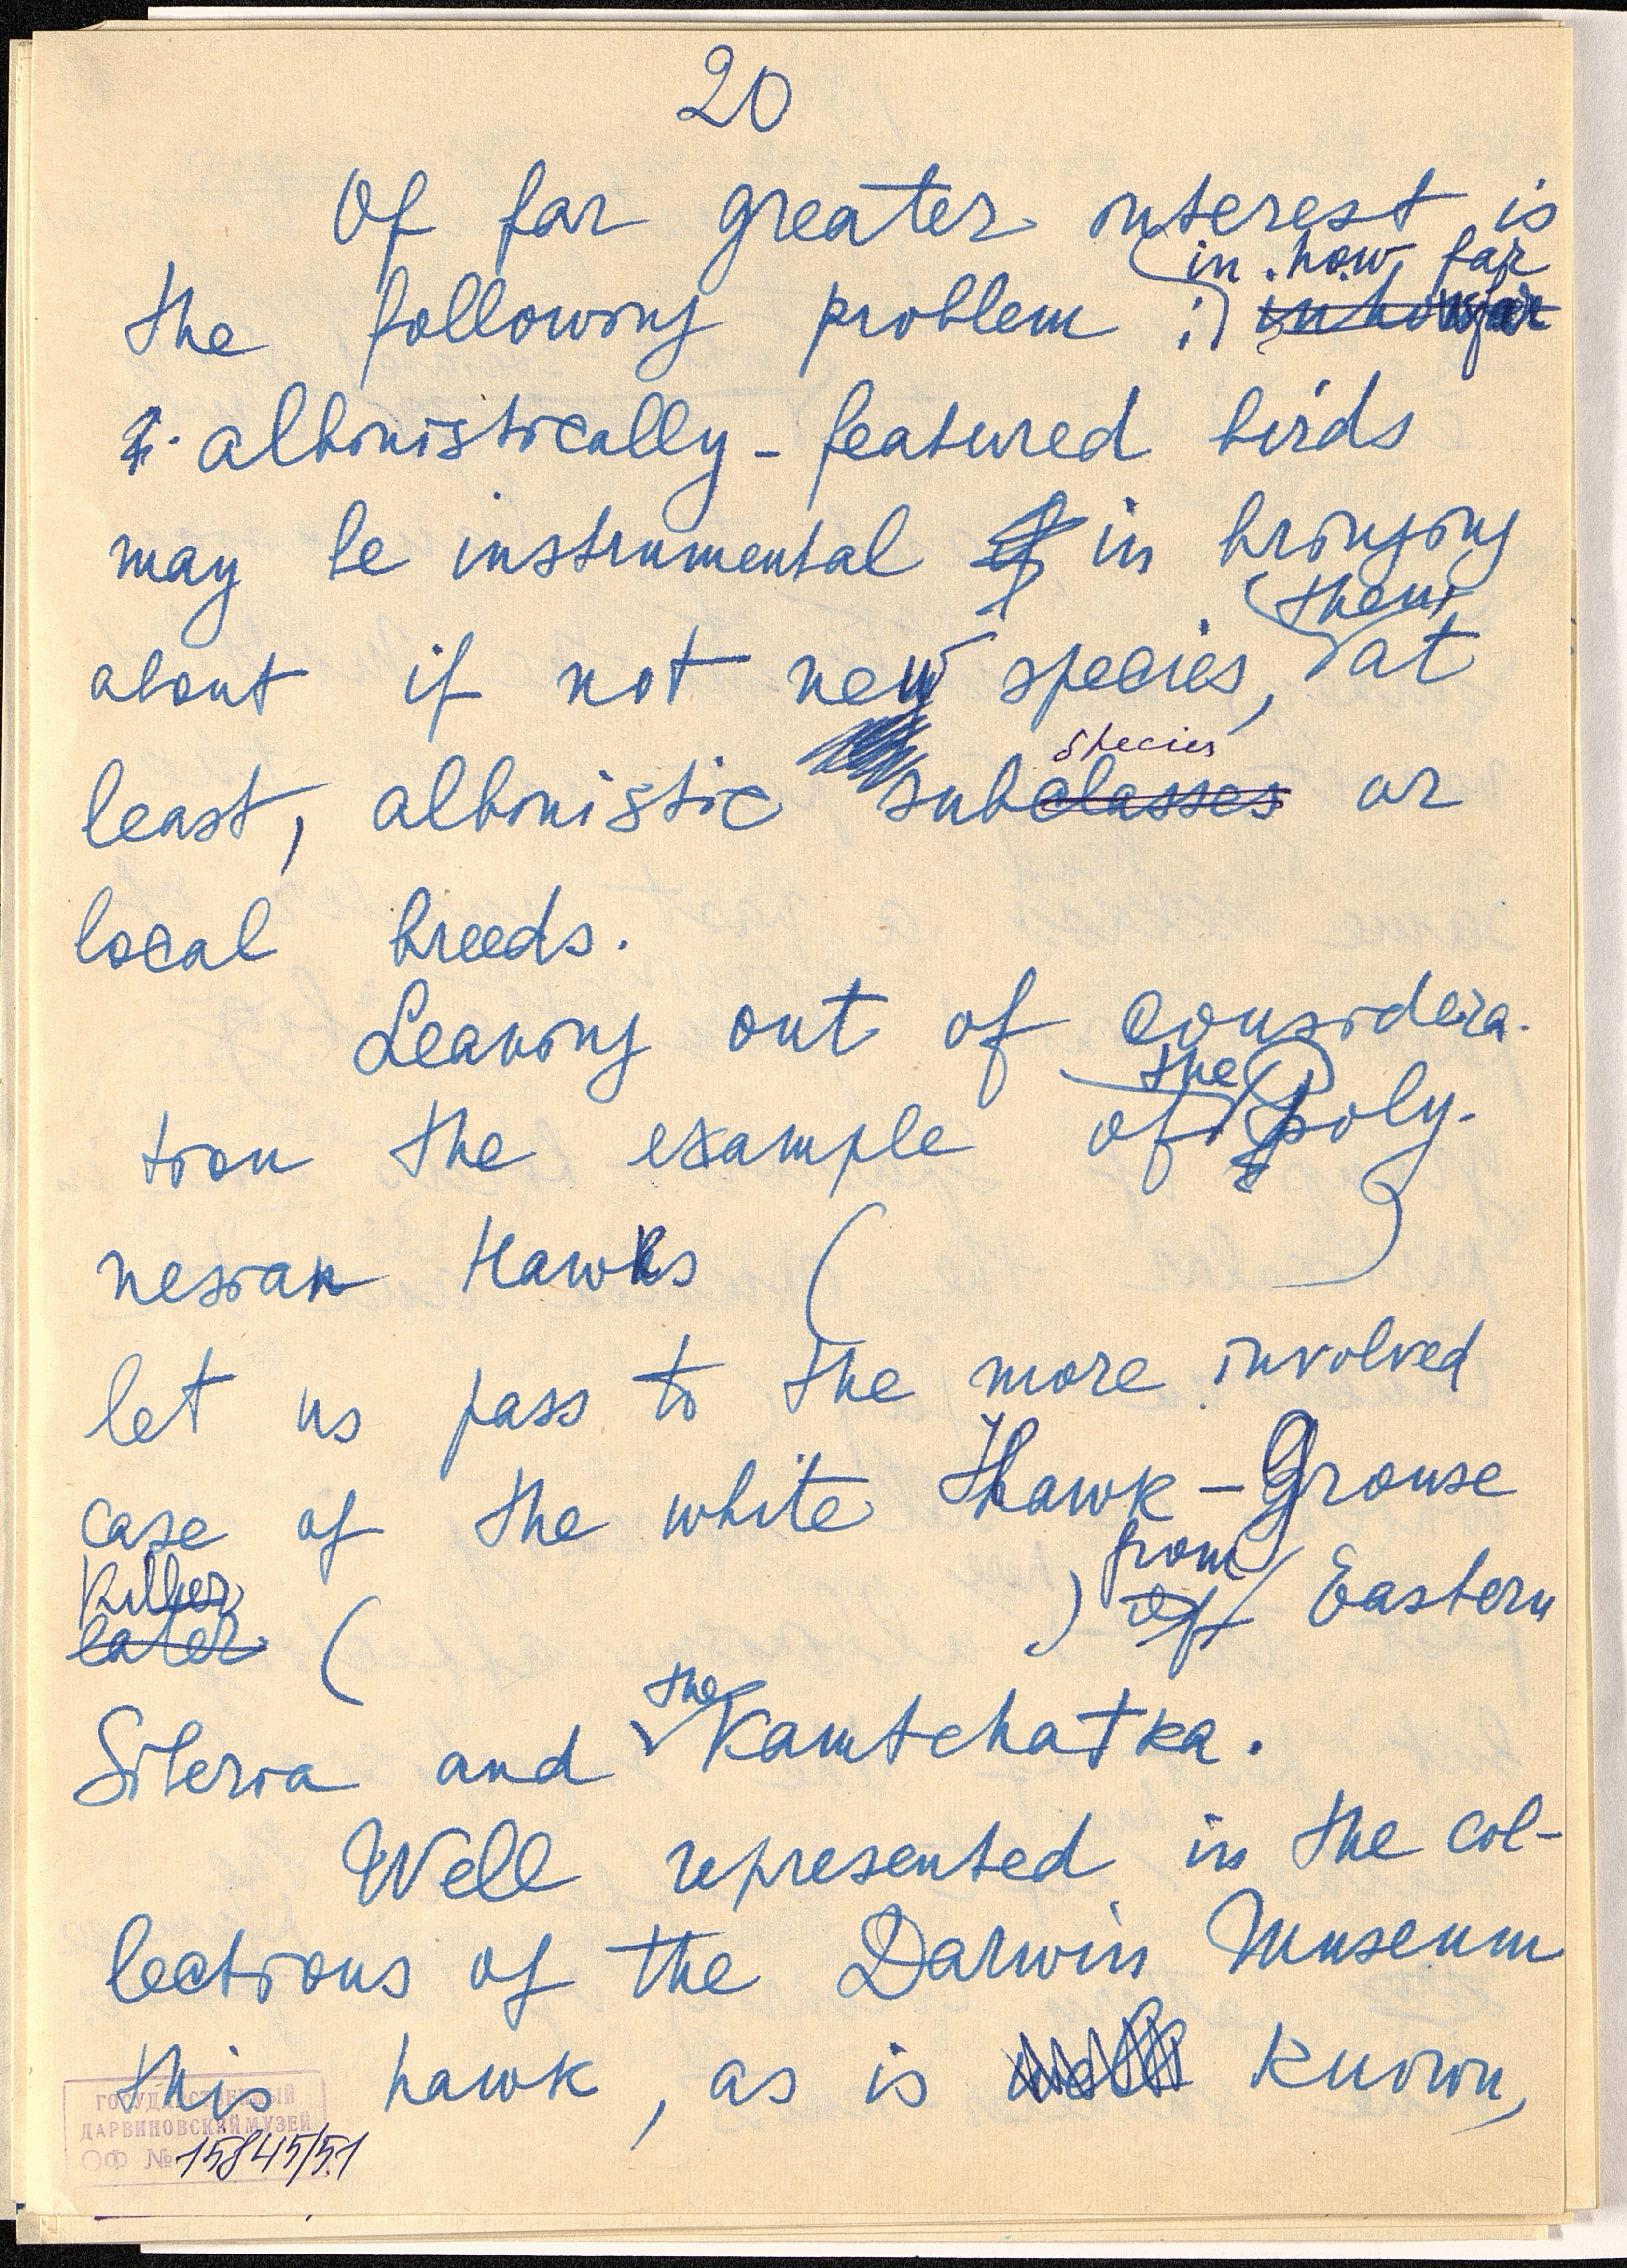 20
Of far greater interest is
in how far
the following problem : inhowfar
albinistically - featured birds
may be instrumental in bringing
them
about if not new species, at
species
least, albinistic subclasses or
local breeds.
Leaving out of considera-
the
tion the example of poly-
nesian Hawks (
)
let us pass to the more involved
case of the white Hawk - Grouse
Killer from
eater ( ) of Eastern
the
Siberia and Kamtchatka.
Well represented in the col-
lections of the Darwin Museum
this hawk, as is well known,
ГОСУДАРСТВЕННЫЙ
ДАРВИНОВСКИЙ МУЗЕЙ
ОФ № 15845/51